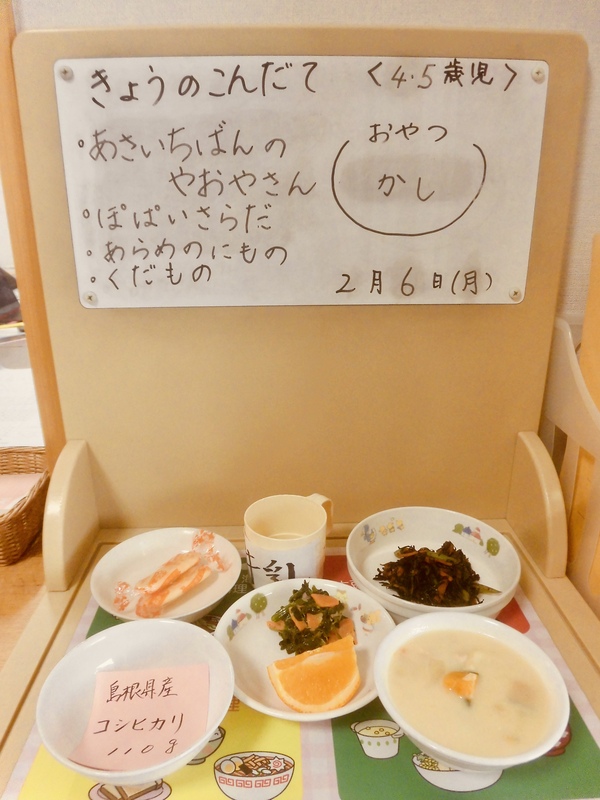 きょうのこんだて 〈4・5歳児〉
・あさいちばんの
やおやさん
・ぽぱいさらだ
・あらめのにもの
・くだもの
おやつ
かし
2月6日(月)
牛乳
島根県産
コシヒカリ
110g